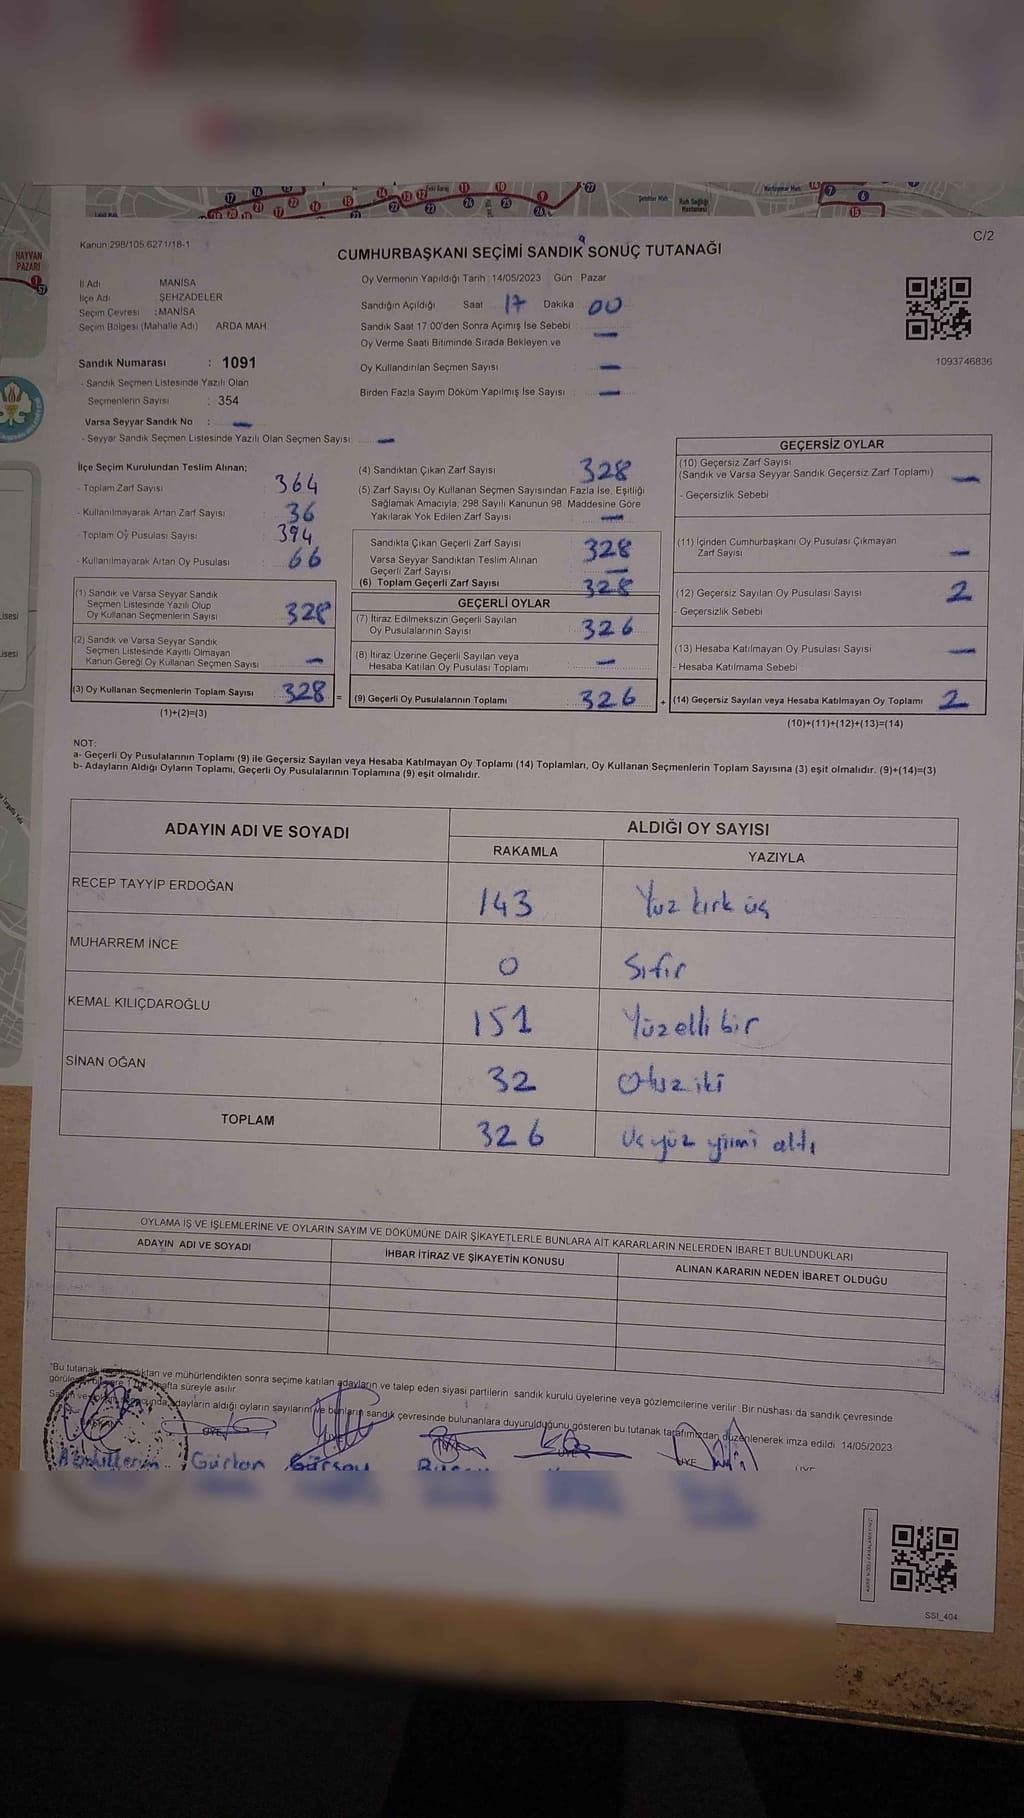 HAYVAN
PAZARI
Ruh Sağlığı
Hastanesi
Kanun:298/105.6271/18-1
C/2
CUMHURBAŞKANI SEÇİMİ SANDIK SONUÇ TUTANAĞI
İl Adı MANİSA
İlçe Adı ŞEHZADELER
Seçim Çevresi :MANİSA
Seçim Bölgesi (Mahalle Adı) ARDA MAH.
Sandık Numarası : 1091
- Sandık Seçmen Listesinde Yazılı Olan
Seçmenlerin Sayısı : 354
Varsa Seyyar Sandık No : —
- Seyyar Sandık Seçmen Listesinde Yazılı Olan Seçmen Sayısı: —
Oy Vermenin Yapıldığı Tarih :14/05/2023 Gün : Pazar
Sandığın Açıldığı Saat 17 Dakika 00
Sandık Saat 17.00'den Sonra Açımış İse Sebebi : —
Oy Verme Saati Bitiminde Sırada Bekleyen ve
Oy Kullandırılan Seçmen Sayısı : —
Birden Fazla Sayım Döküm Yapılmış İse Sayısı : —
1093746836
İlçe Seçim Kurulundan Teslim Alınan;
- Toplam Zarf Sayısı : 364
- Kullanılmayarak Artan Zarf Sayısı : 36
- Toplam Oy Pusulası Sayısı : 394
- Kullanılmayarak Artan Oy Pusulası : 66
(1) Sandık ve Varsa Seyyar Sandık
Seçmen Listesinde Yazılı Olup
Oy Kullanan Seçmenlerin Sayısı 328
(2) Sandık ve Varsa Seyyar Sandık
Seçmen Listesinde Kayıtlı Olmayan
Kanun Gereği Oy Kullanan Seçmen Sayısı —
(3) Oy Kullanan Seçmenlerin Toplam Sayısı 328 =
(1)+(2)=(3)
(4) Sandıktan Çıkan Zarf Sayısı 328
(5) Zarf Sayısı Oy Kullanan Seçmen Sayısından Fazla İse, Eşitliği
Sağlamak Amacıyla; 298 Sayılı Kanunun 98. Maddesine Göre
Yakılarak Yok Edilen Zarf Sayısı : —
Sandıkta Çıkan Geçerli Zarf Sayısı 328
Varsa Seyyar Sandıktan Teslim Alınan
Geçerli Zarf Sayısı —
(6) Toplam Geçerli Zarf Sayısı 328
GEÇERLİ OYLAR
(7) İtiraz Edilmeksizin Geçerli Sayılan
Oy Pusulalarının Sayısı 326
(8) İtiraz Üzerine Geçerli Sayılan veya
Hesaba Katılan Oy Pusulası Toplamı —
(9) Geçerli Oy Pusulalarının Toplamı 326 +
GEÇERSİZ OYLAR
(10) Geçersiz Zarf Sayısı
(Sandık ve Varsa Seyyar Sandık Geçersiz Zarf Toplamı) —
- Geçersizlik Sebebi
(11) İçinden Cumhurbaşkanı Oy Pusulası Çıkmayan
Zarf Sayısı —
(12) Geçersiz Sayılan Oy Pusulası Sayısı 2
- Geçersizlik Sebebi
(13) Hesaba Katılmayan Oy Pusulası Sayısı —
- Hesaba Katılmama Sebebi
(14) Geçersiz Sayılan veya Hesaba Katılmayan Oy Toplamı 2
(10)+(11)+(12)+(13)=(14)
NOT:
a- Geçerli Oy Pusulalarının Toplamı (9) ile Geçersiz Sayılan veya Hesaba Katılmayan Oy Toplamı (14) Toplamları, Oy Kullanan Seçmenlerin Toplam Sayısına (3) eşit olmalıdır. (9)+(14)=(3)
b- Adayların Aldığı Oyların Toplamı, Geçerli Oy Pusulalarının Toplamına (9) eşit olmalıdır.
ADAYIN ADI VE SOYADI ALDIĞI OY SAYISI
RAKAMLA YAZIYLA
RECEP TAYYİP ERDOĞAN 143 Yüz kırk üç
MUHARREM İNCE 0 Sıfır
KEMAL KILIÇDAROĞLU 151 Yüzelli bir
SİNAN OĞAN 32 Otuz iki
TOPLAM 326 Üçyüz yirmi altı
OYLAMA İŞ VE İŞLEMLERİNE VE OYLARIN SAYIM VE DÖKÜMÜNE DAİR ŞİKAYETLERLE BUNLARA AİT KARARLARIN NELERDEN İBARET BULUNDUKLARI
ADAYIN ADI VE SOYADI İHBAR İTİRAZ VE ŞİKAYETİN KONUSU ALINAN KARARIN NEDEN İBARET OLDUĞU
"Bu tutanak ve mühürlendikten sonra seçime katılan adayların ve talep eden siyasi partilerin sandık kurulu üyelerine veya gözlemcilerine verilir. Bir nüshası da sandık çevresinde
hafta süreyle asılır.
adayların aldığı oyların sayılarını ve bunların sandık çevresinde bulunanlara duyurulduğunu gösteren bu tutanak tarafımızdan düzenlenerek imza edildi. 14/05/2023
ÜYE ÜYE ÜYE ÜYE ÜYE ÜYE
Gürkan Gürsoy
SSI_404